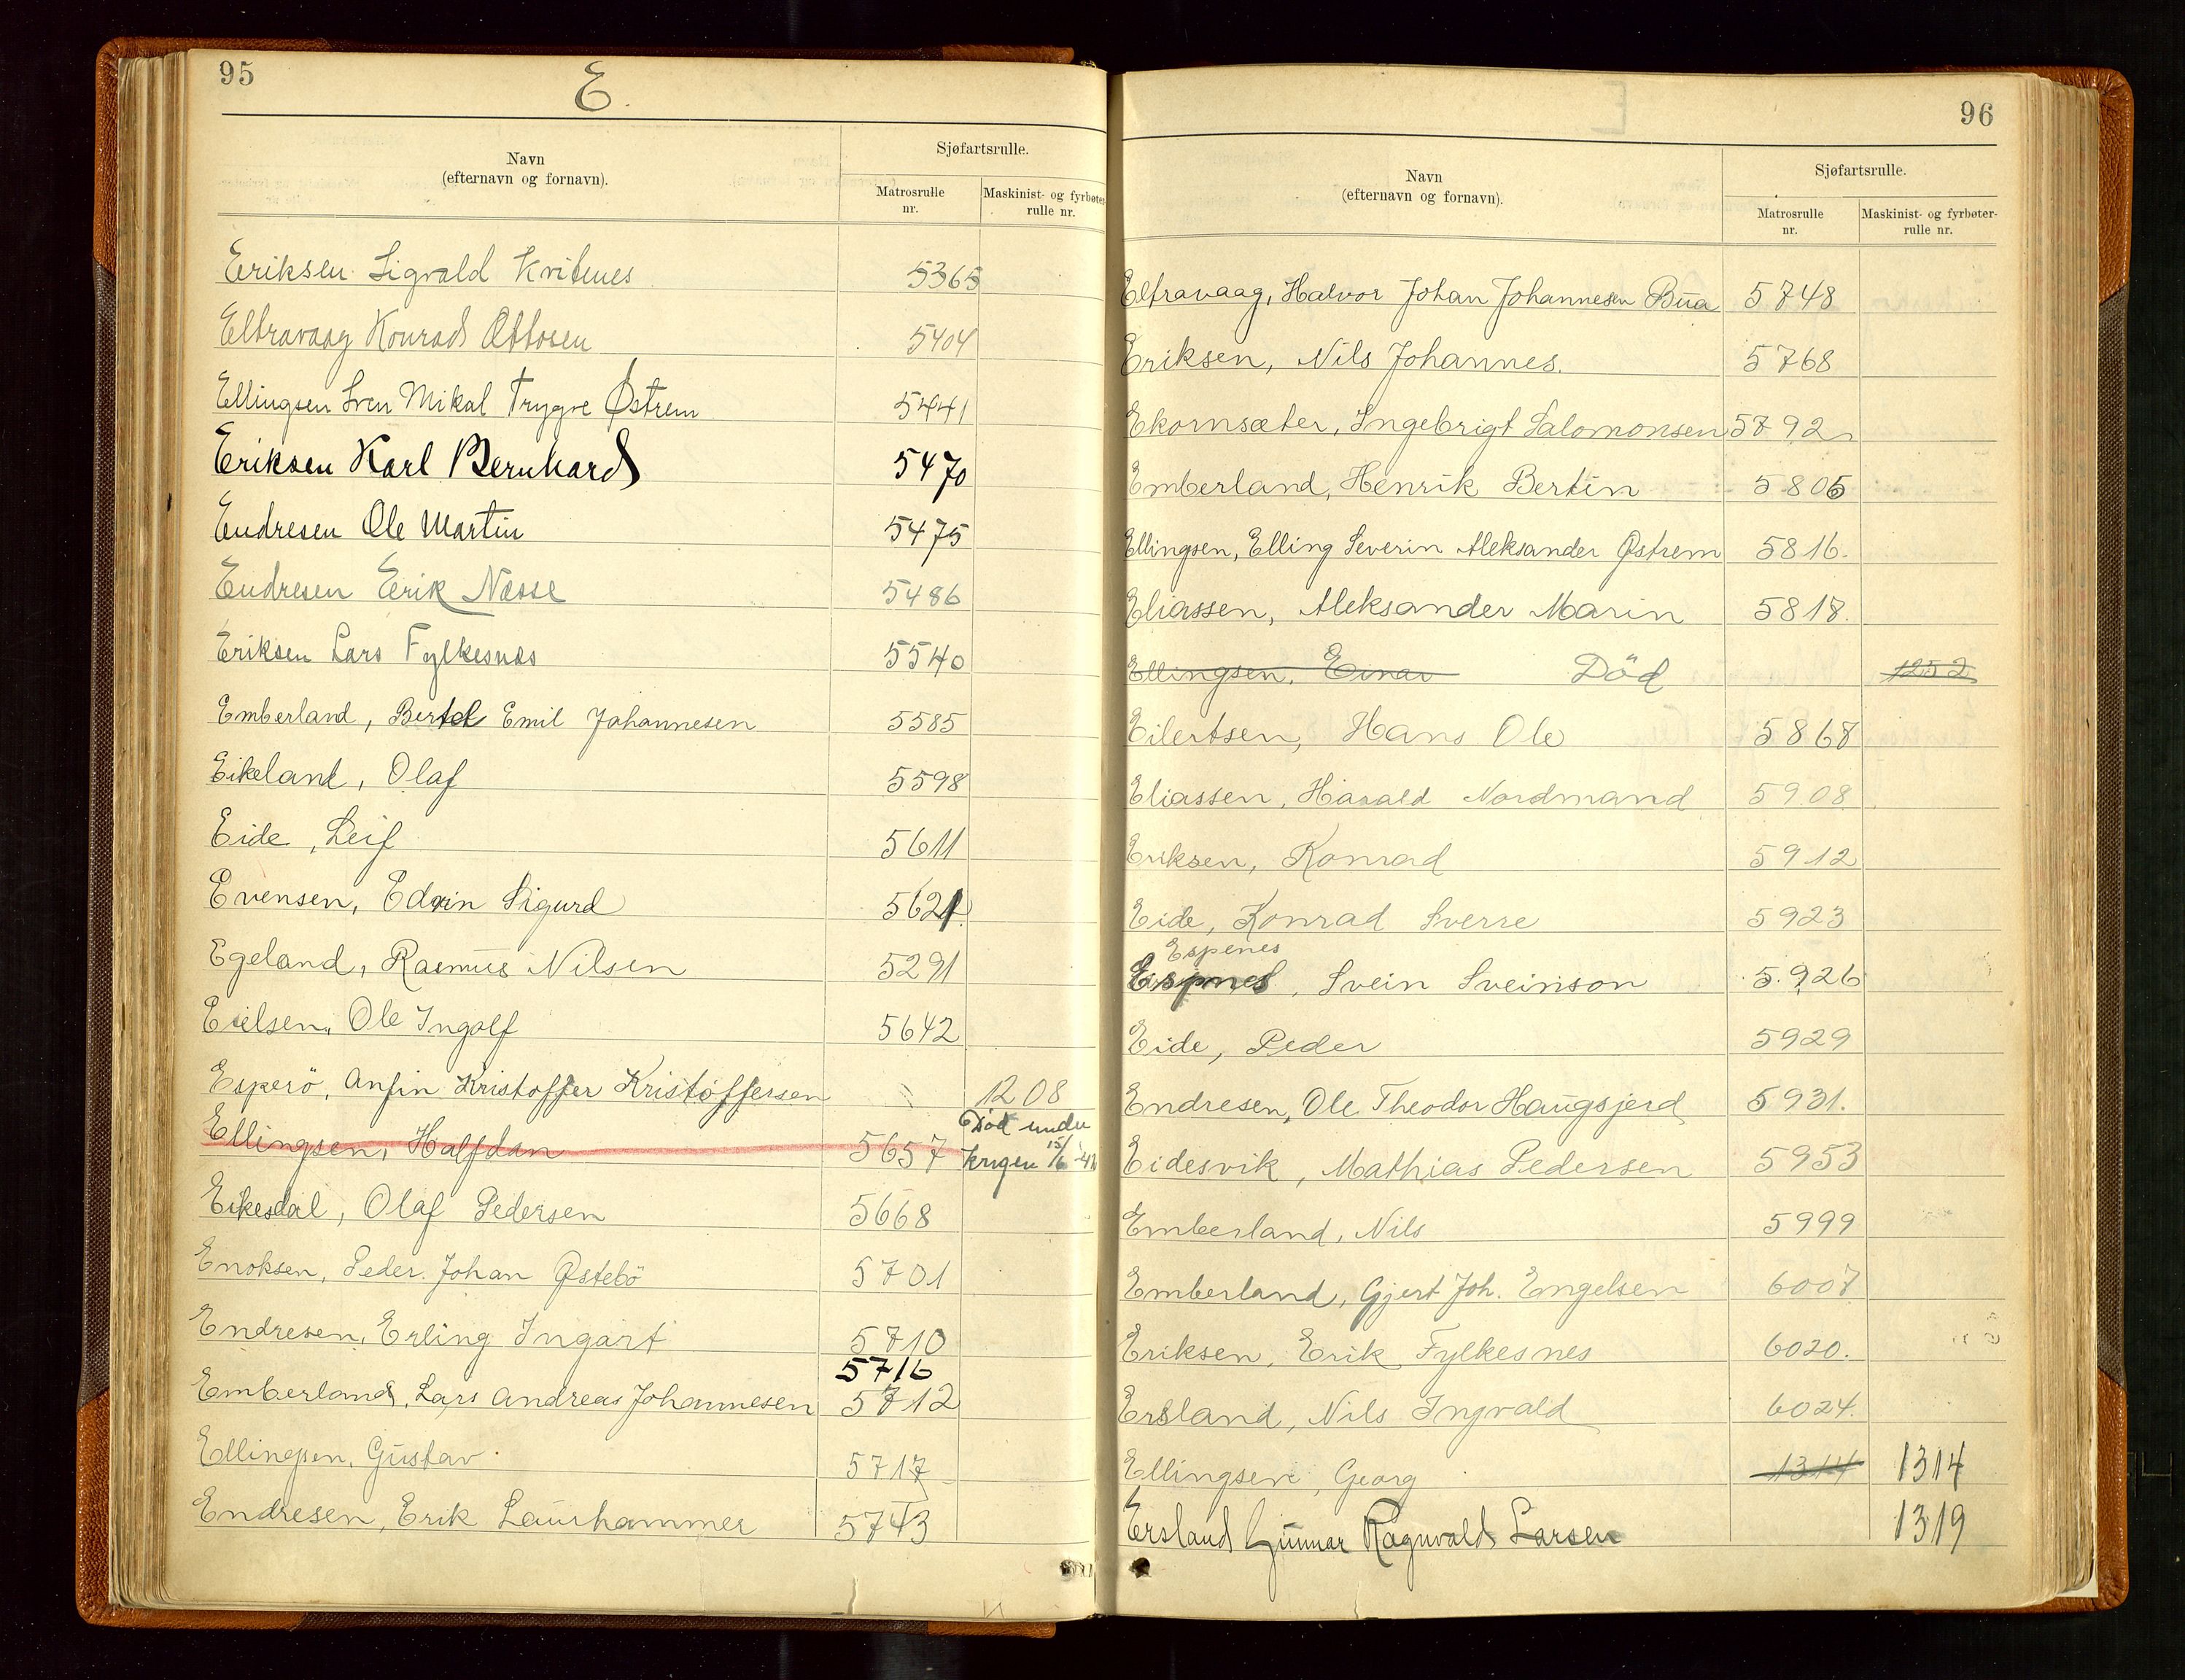 95
E.
Navn
(efternavn og fornavn).
Sjøfartsrulle.
Matrosrulle nr.
Maskinist- og fyrbøter rulle nr.
Eeriksen Sigvald Kvitenes 5365
Eltravaag Konrad Ottosen 5404
Ellingsen Sven Mikal Trygve Østrem 5441
Eriksen Karl Bernhard 5470
Endresen Ole Martin 5475
Endresen Eerik Nesse 5486
Eriksen Lars Fylkesnæs 5540
Emberland, Bertel Emil Johannesen 5585
Eikeland, Olaf 5598
Eide, Leif 5611
Evensen, Edvin Sigurd 5621
Egeland, Rasmus Nilsen 5291
Eielsen, Ole Ingolf 5642
Esperö, Anfin Kristoffer Kristoffersen " 1208
Ellingsen, Halfdan 5657 Död under krigen 15/6-41
Eikesdal, Olaf Pedersen 5668
Enoksen, Peder Johan Østebö 5701
Endresen, Erling Ingart 5710
5716
Emberland, Lars Andreas Johannesen 5712
Ellingsen, Gustav 5717
Endresen, Erik Laurhammer 5743
96
Navn
(efternavn og fornavn).
Sjøfartsrulle.
Matrosrulle nr.
Maskinist- og fyrbøter- rulle nr.
Eltravaag, Halvor Johan Johannesen Bua 5748
Eriksen, Nils Johannes. 5768
Ekornsæter, Ingebrigt Salomonsen 5792
Emberland, Henrik Bertin 5805
Ellingsen, Elling Severin Aleksander Østrem 5816.
Eliassen, Aleksander Marin 5818.
Ellingsen, Einar Död 1252
Eilertsen, Hans Ole 5868
Eliassen, Harald Nordmand 5908
Eriksen, Konrad 5912
Eide, Konrad Sverre 5923
Espenes
Espnes, Svein Sveinson 5926
Eide, Peder 5929
Endresen, Ole Theodor Haugsjerd 5931.
Eidesvik, Mathias Pedersen 5953
Emberland, Nils 5999
Emberland, Gjert Joh. Engelsen 6007
Eriksen, Erik Fylkesnes 6020.
Ersland, Nils Ingvald 6024.
Ellingsen, Georg 1314 1314
Ersland Gunnar Ragnvald Larsen 1319